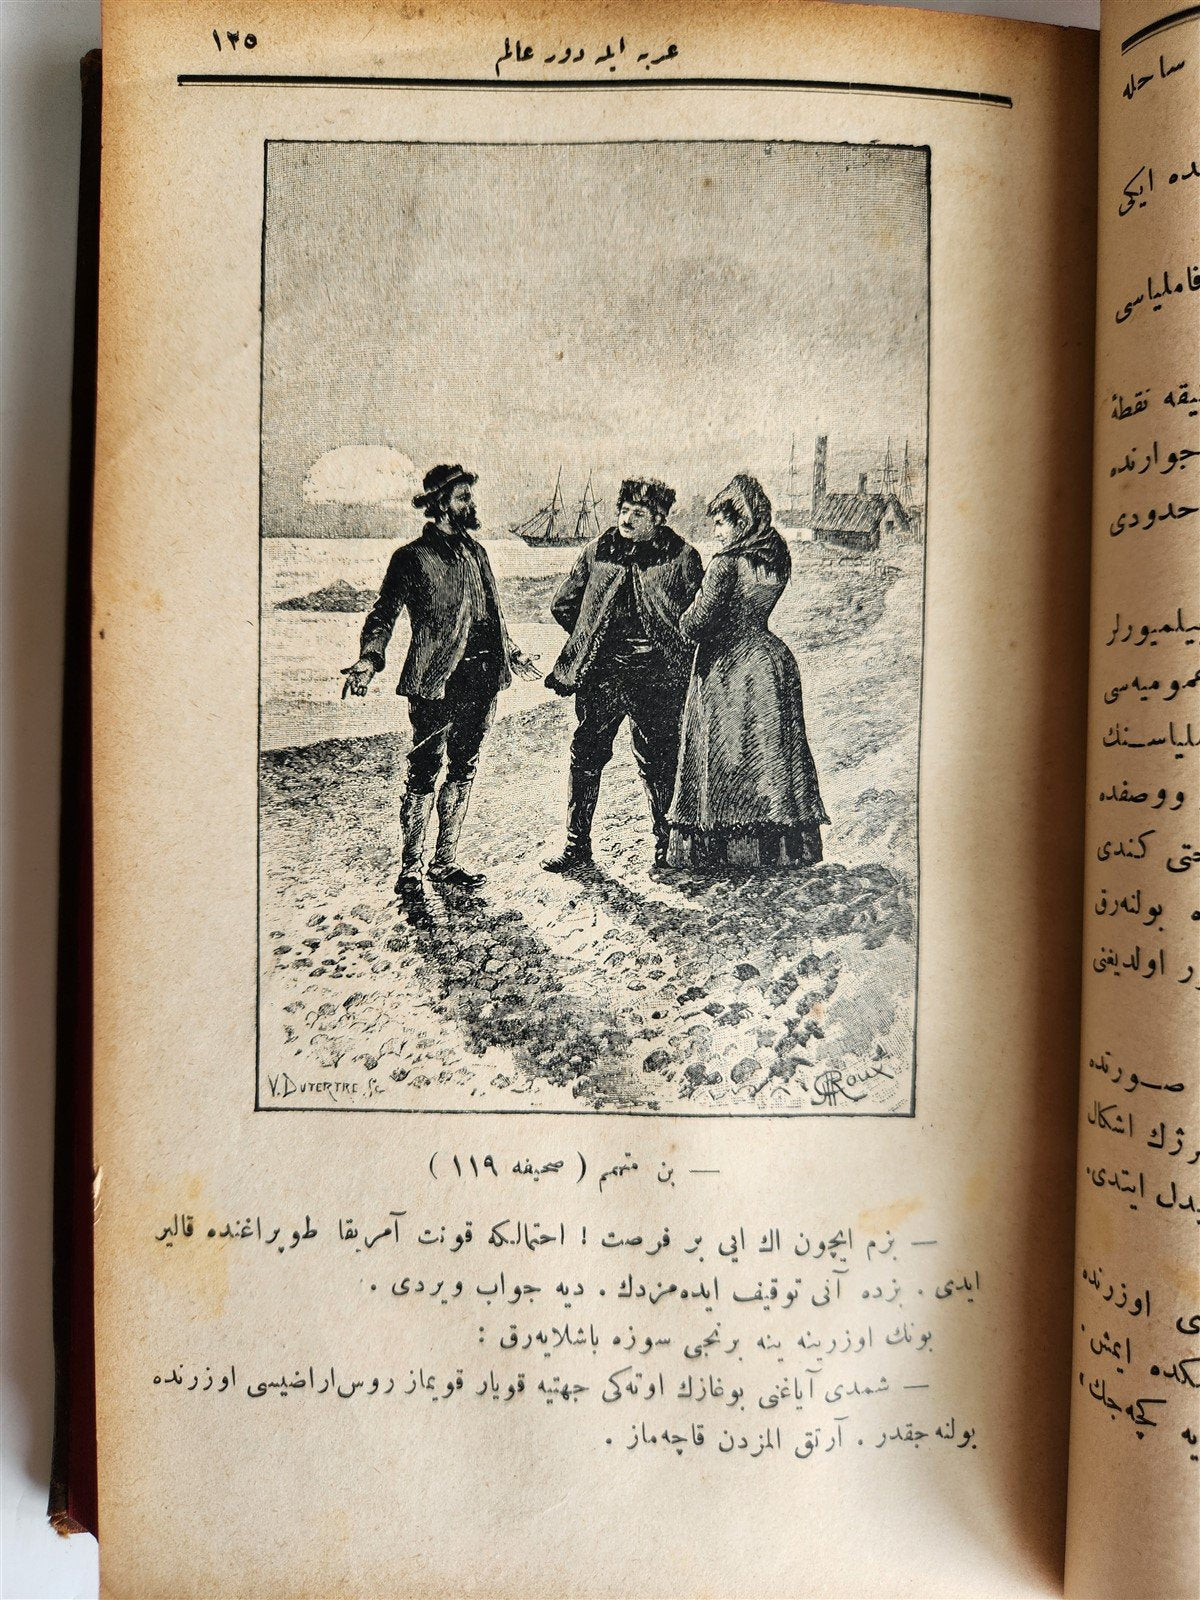 عربه ایله دور عالم
١٢٥
V. DUTERTRE Sc
G ROUX
— بن متهمم ( صحیفه ١١٩ )
— بزم ایچون اك ایی بر فرصت ! احتمالکه قونت آمریقا طوپراغنده قالیر
ایدی . بزده آنی توقیف ایده مزدك . دیه جواب ویردی .
بونك اوزرینه ینه برنجی سوزه باشلایه رق :
— شمدی آیاغنی بوغازك اوته کی جهتیه قویار قویماز روس اراضیسی اوزرنده
بولنه جقدر . آرتق المزدن قاچه ماز .
ساحله
ده ایکی
فاملیاسی
یقه نقطهٔ
جوارنده
حدودی
یلمیورلر
عمومیه سی
ملیاسـنك
ووصفده
حتی کندی
بولنه رق
اولدیغنی
صـورتده
رژك اشکال
یدل ایتدی .
ی اوزرنده
کده ایمش .
یه کچه جك